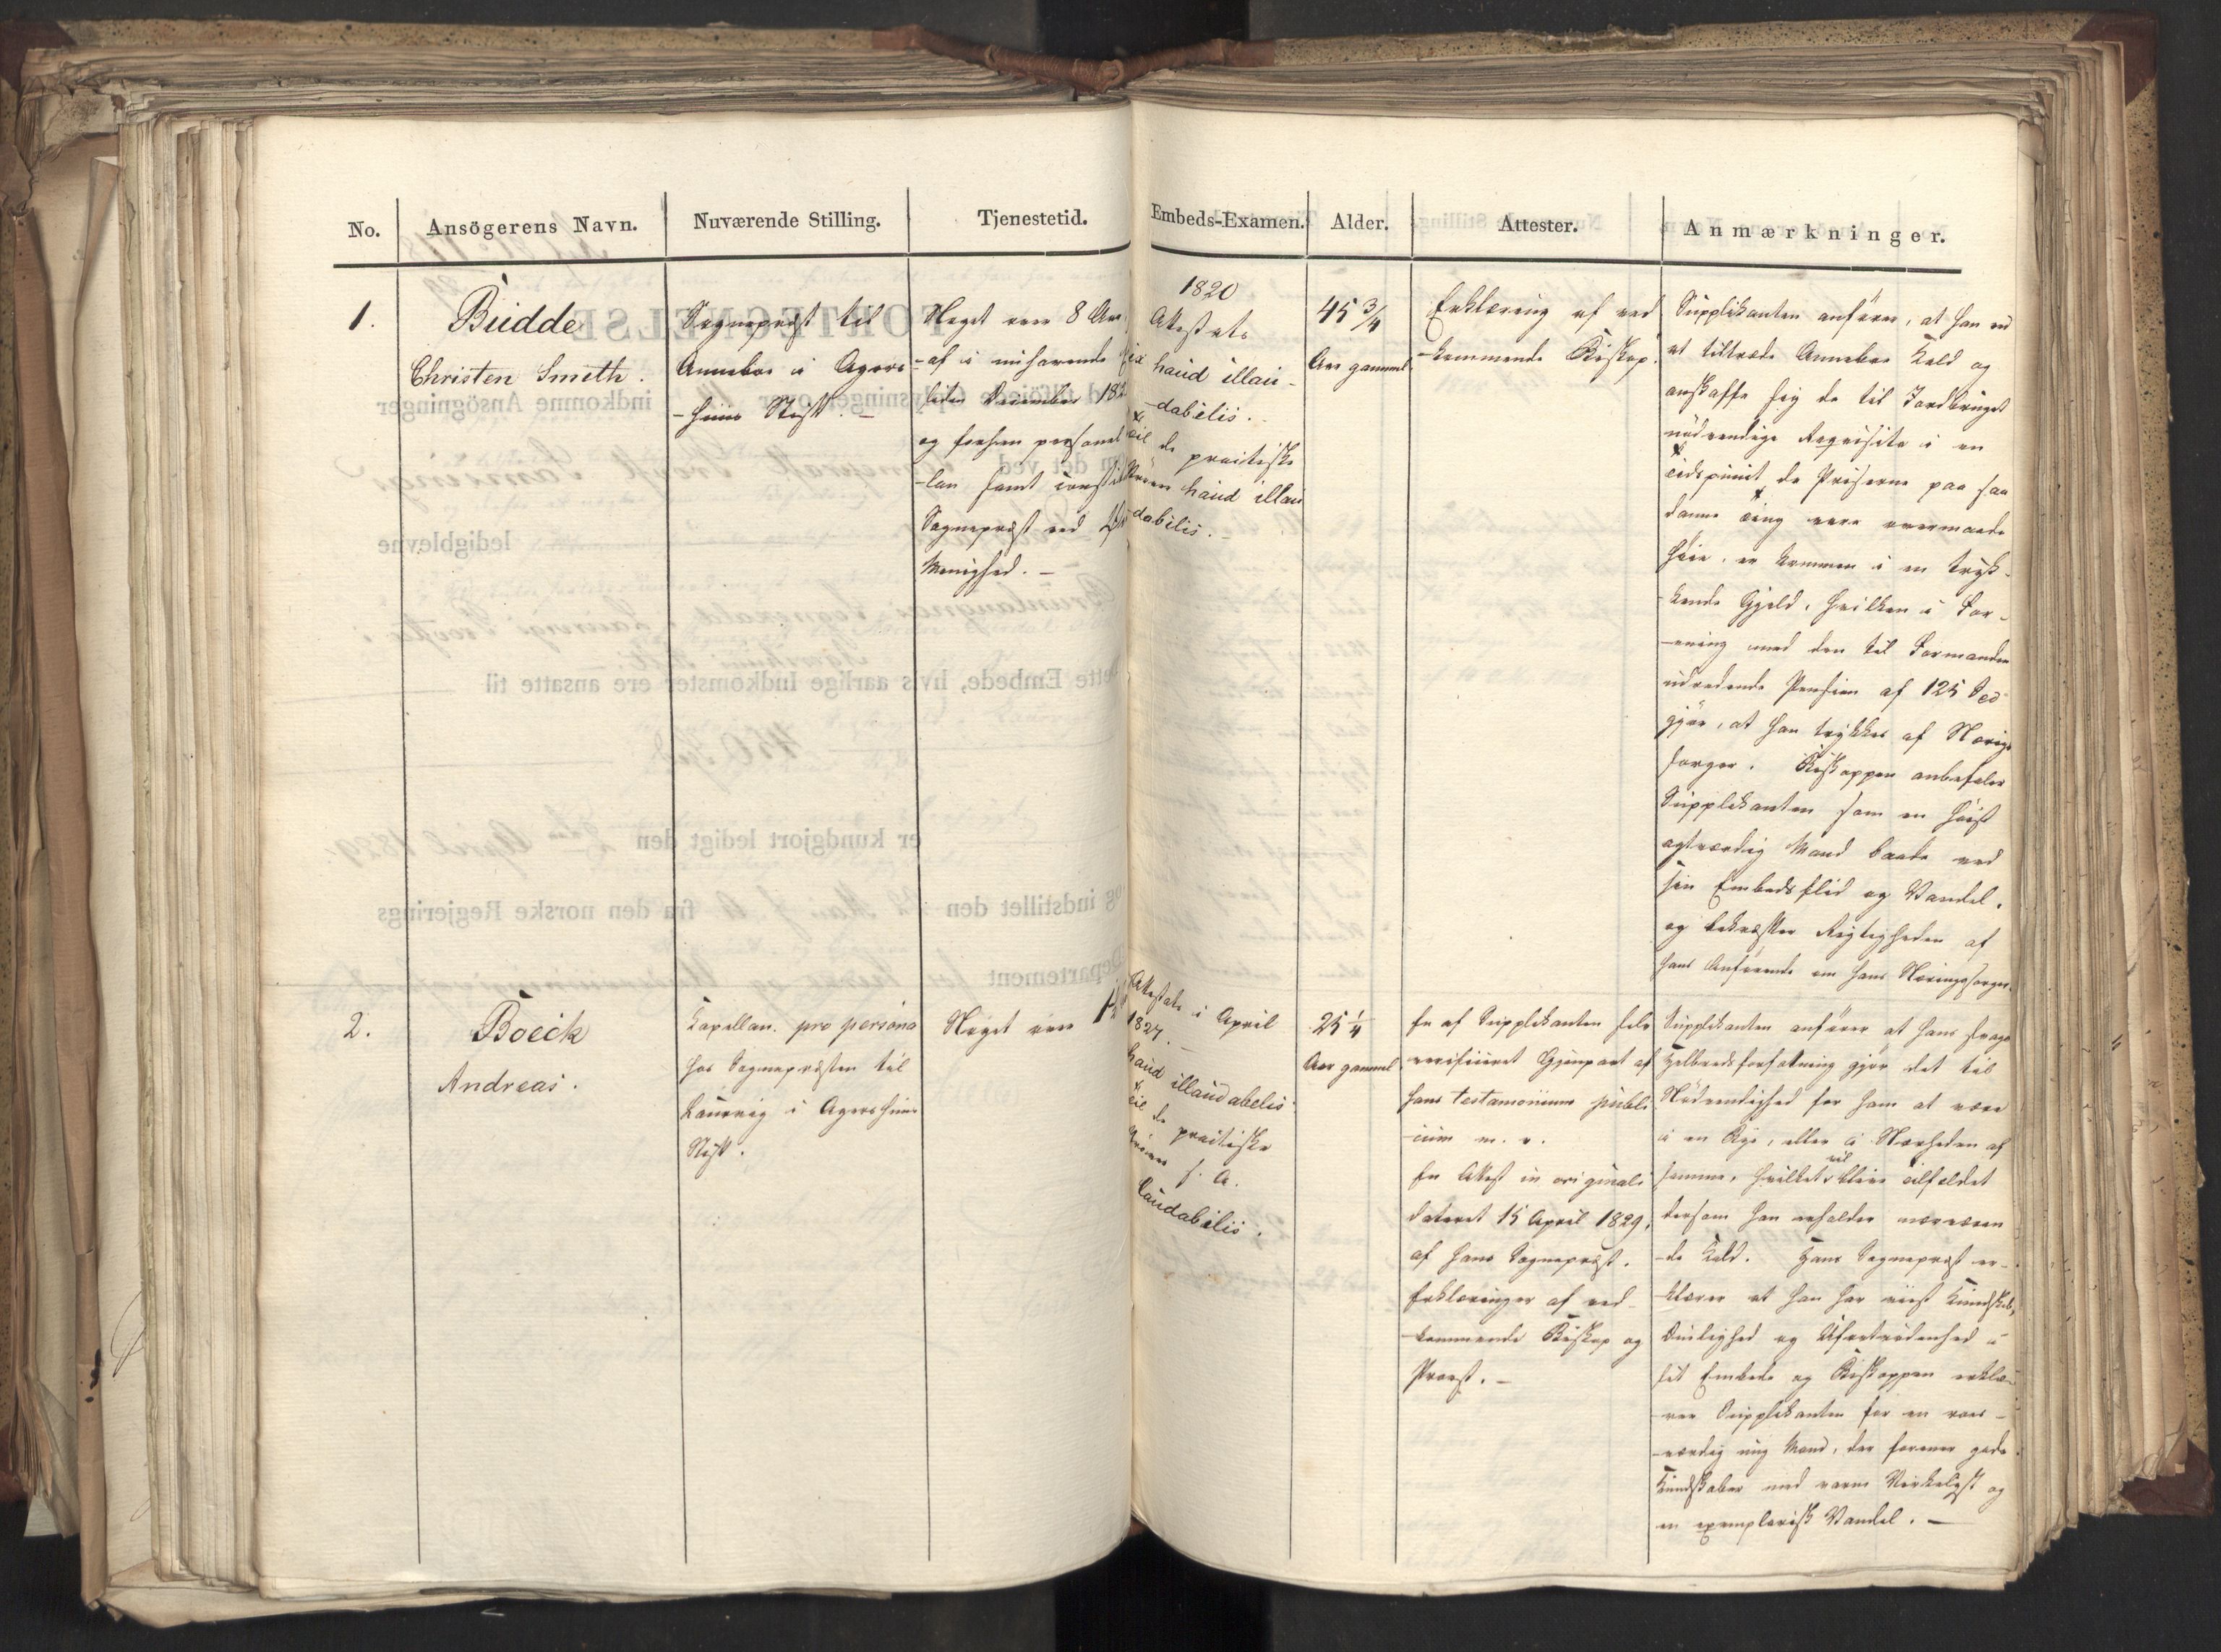 No.
Ansögerens Navn.
Nuværende Stilling.
Tjenestetid.
Embeds-Examen.
Alder.
Attester.
Anmærkninger.
1.
Budde
Christen Smith.
Sognepræst til
Annebøe i Agers-
-huus Stift. -
Noget over 8 Aar
-af i nuhavende
siden December 182
og forhen personel
-lan samt const
Sognepræst ved
Menighed. -
1820
Attestats
haud illau-
-dabilis.
til de practiske
Prøver haud illau
dabilis. -
45 3/4
Aar gammel
Erklæring af ved
-kommende Biskop.
Supplikanten anfører, at han ved
at tiltræde Annebøe Kald og
anskaffe sig de til Jordbruget
nødvendige Reqvisita i en
Tidspunct da Priserne paa saa
danne Ting vare overmaade
høie, er kommen i en tryk-
-kende Gjeld, hvilken i For-
-ening med den til Formanden
udredende Pension af 125 Spd
gjør, at han trykkes af Nærings
sorger. Biskoppen anbefaler
Supplikanten som en høist
agtværdig Mand baade ved
sin Embedsflid og Vandel,
og bekræfter Rigtigheden af
hans Anførende om hans Næringssorger.
2.
Boeck
Andreas.
Capellan pro persona
hos Sognepræsten til
Laurvig i Agershuus
Stift.
Noget over 1 1/2
Attestats i April
1827. -
haud illaudabilis
til de practiske
Prøver s. A.
laudabilis.
25 1/4
Aar gammel
En af Supplikanten selv
verificeret Gjenpart af
hans testamonium publi
-cum m. v.
En Attest in originali
dateret 15 April 1829,
af hans Sognepræst.
Erklæringer af ved-
-kommende Biskop og
Provst. -
Supplikanten anfører at hans svage
Helbredsforfatning gjør det til
Nødvendighed for ham at være
i en Bye, eller i Nærheden af
samme, hvilket vil blive Tilfældet
dersom han erholder nærværen
-de Kald. Hans Sognepræst er-
-klærer at han har viist Kundskab,
Duelighed og Ufortrødenhed i
sit Embede og Biskoppen erklæ-
-rer Supplikanten for en roes-
-værdig ung Mand, der forener gode
Kundskaber med varm Virkelyst og
en exemplarisk Vandel. -